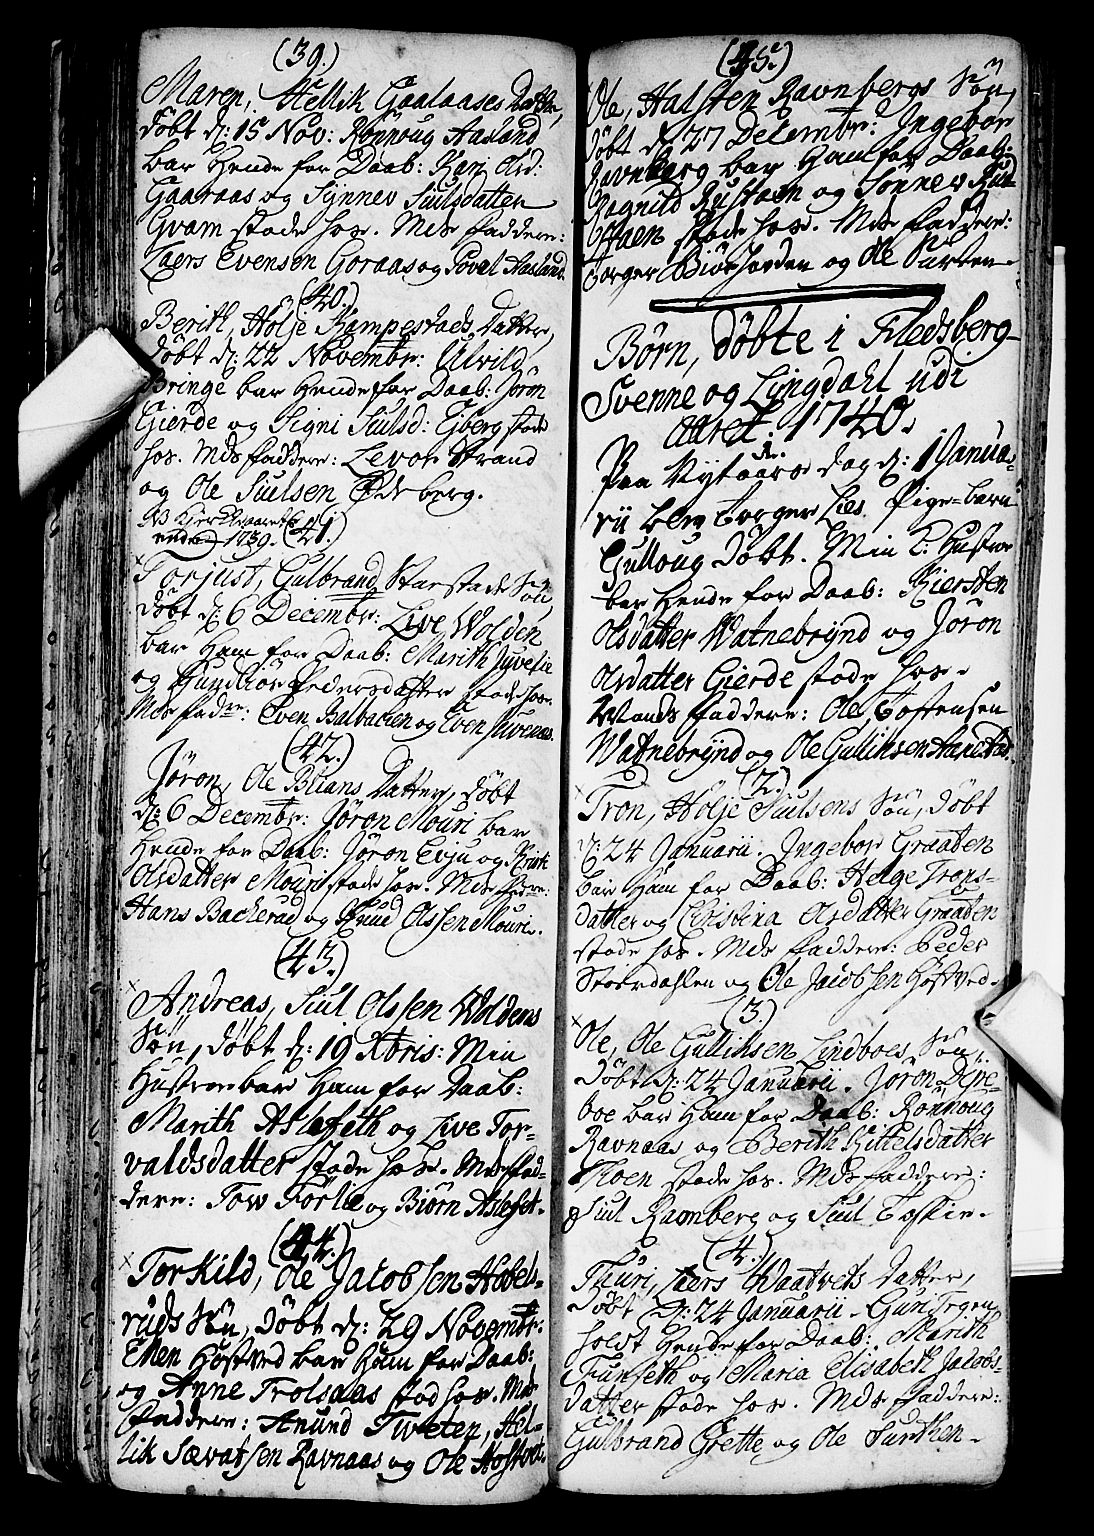 (39.)
Maren, Hellik Gaalaases Datter,
døbt d: 15 Nov: Rönnoug Aasland
bar Hende for Daab: Kari Ard:
Gaaraas og Synnev Siulsdatter
Gvam stode hos. Mds faddere:
Laers Evensen Goraas og Povel Aasland.
(40.)
Berith, Holje Kampestads Datter,
døbt d: 22 Novembr: Ulvild
Bringe bar Hende for Daab: Jøron
Gierde og Signi Siulsd: Egberg stode
hos. Mds faddere: Levor Strand
og Ole Siulsen Ødeberg.
NB Kierke aaret
endes 1739. (41)
Torjust, Gulbrand Starstads Søn,
døbt d: 6 Decembr: Live Wolden
bar Ham for Daab: Marith
og Gunbior Pedersdatter stode hos.
Mds fadre: Even Balbachen og Even
(42.)
Jøron, Ole Blians Datter, døbt
d: 6 Decembr: Jøron Mouri bar
Hende for Daab: Jøron Evju og Kirsti
Olsdatter Mouri stode hos. Mds fadre:
Hans Bacherud og Knud Olssen Mouri.
(43.)
Andreas, Siul Olssen Woldens
Søn, døbt d: 19 Xbris: Min
Hustroe bar Ham for Daab:
Marith Aslefeth og Live Tor-
valdsdatter stode hos. Mds fad-
dere: Tow Førlie og Biørn Aslefet.
(44.)
Torkild, Ole Jacobsen Hobels-
ruds Søn, døbt d: 29 Novembr:
Ellen Hostved bar Ham for Daab,
og Anne Trolsaas stod hos. Mds
faddere: Anund Tweten, Hel-
lik Sævatsen Ravnaas og Ole Hostvet.
(45.)
Ole, Halsten Ravnbergs Søn,
døbt d: 27 Decembr: Ingebor
Ravnberg bar Ham for Daab:
Ragnild Rustaen og Sønnev Ru-
staen stode hos. Mds faddere:
Torger Biørhovden og Ole Surten.
Børn, døbte i Flædsberg
Svenne og Lingdahl udi
aaret: 1740.
Paa Nytaars dag d: 1 Janua-
rii blev Torger Lies Pige-barn
Gulloug døbt. Min l: Hustroe
bar Hende for Daab: Kiersten
Olsdatter Watnebrynd og Jøron
Olsdatter Gierde stode hos.
Mands faddere: Ole Toftensen
Watnebrynd og Ole Gullihsen Aanestad.
(2.)
Tron, Holje Siulsens Søn, døbt
d: 24 Januarii. Ingebor Graaten
bar Ham for Daab: Helge Trons-
datter og Christina Olsdatter Graaten
stode hos. Mds faddere: Peder
Stoerdahlen og Ole Jacobsen Hostved.
(3.)
Ole, Ole Gullihsen Lindboes Søn,
døbt d: 24 Januarii. Jøron Gre-
boe bar Ham for Daab: Rönnoug
Ravnaas og Berith Kittelsdatter
Moen stode hos. Mds faddere:
Siul Ravnberg og Siul Foskie.
(4.)
Thuri, Laers Waatvets Datter,
døbt d: 24 Januarii. Gun Tegen
holdt Hende for Daab: Marith
Funseth og Maria Elisabeth Jacobs-
datter stode hos. Mds faddere:
Gulbrand Grette og Ole Surthen.